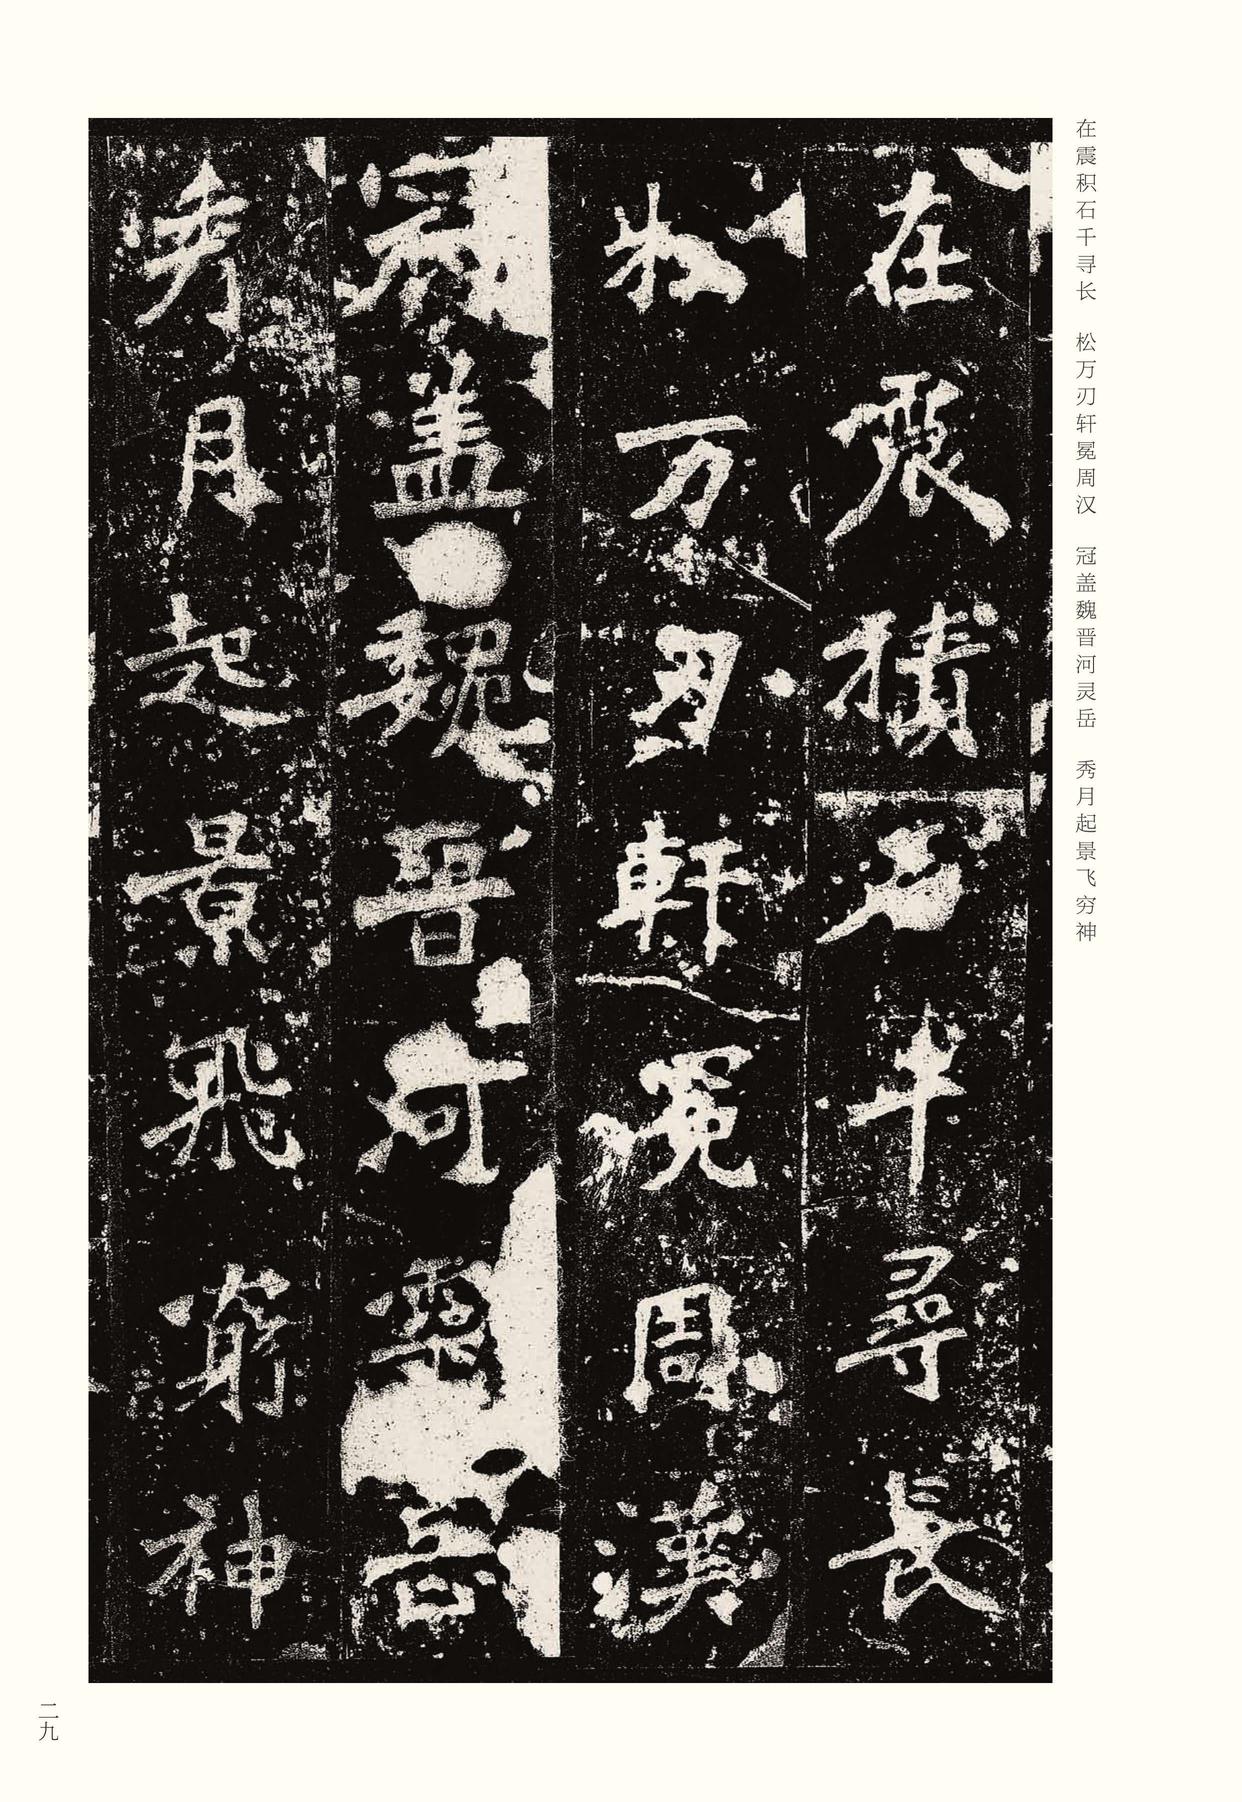 在震积石千寻长　松万刃轩冕周汉　冠盖魏晋河灵岳　秀月起景飞穷神
在震積石千尋長
松万刃軒冕周漢
冠盖魏晉河靈岳
秀月起景飛窮神
二九